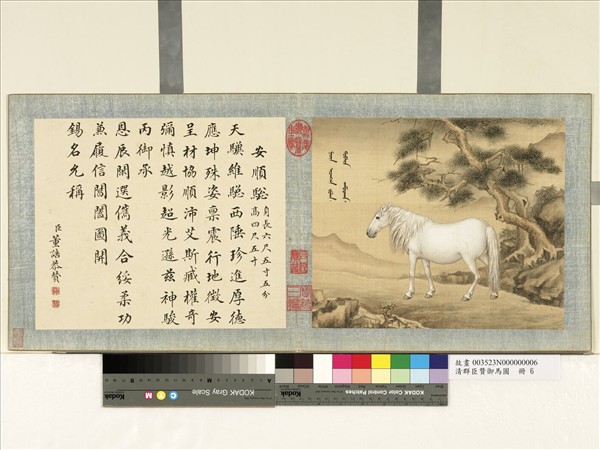 安順駓
身長六尺五寸五分
高四尺五寸
天驥維駓西陲珍進厚德
應坤殊姿稟震行地徵安
呈材協順沛艾斯臧權奇
彌慎越影超光遜茲神駿
丙御承
恩辰閑選儁義合綏柔功
兼履信閶闔圖開
錫名允稱
臣董誥恭贊
KODAK Gray Scale
Kodak
KODAK Color Control Patches
故畫 003523N000000006
清群臣贊御馬圖 冊 6